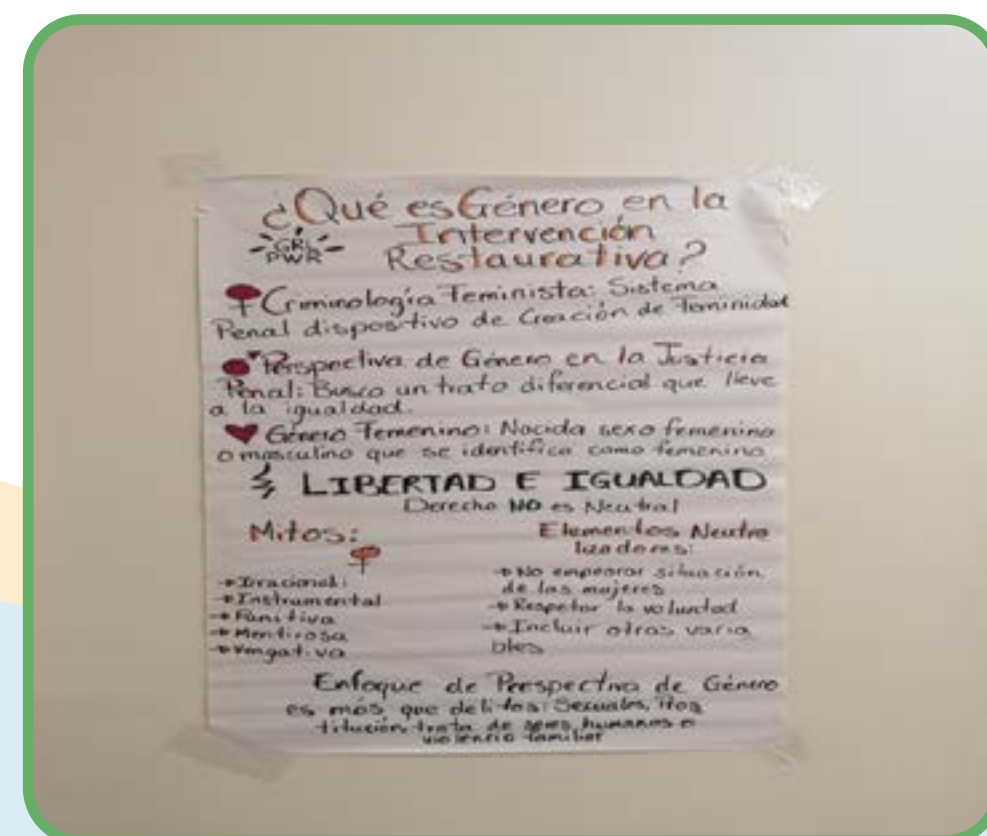 ¿Qué es Género en la
Intervención
GRL
PWR
Restaurativa?
Criminología Feminista: Sistema
Penal dispositivo de Creación de Feminidad
Perspectiva de Género en la Justicia
Penal: Busca un trato diferencial que lleve
a la igualdad.
Género Femenino: Nacida sexo femenino
o masculino que se identifica como femenino
LIBERTAD E IGUALDAD
Derecho NO es Neutral
Mitos:
→Irracional:
→Instrumental
→Punitiva
→Mentirosa
→Vengativa
Elementos Neutra
lizadores:
→No empeorar situación
de las mujeres
→Respetar la voluntad
→Incluir otras varia
bles
Enfoque de Perspectiva de Género
es más que delitos: Sexuales, Pros
titución, trata de seres humanos o
violencia familiar